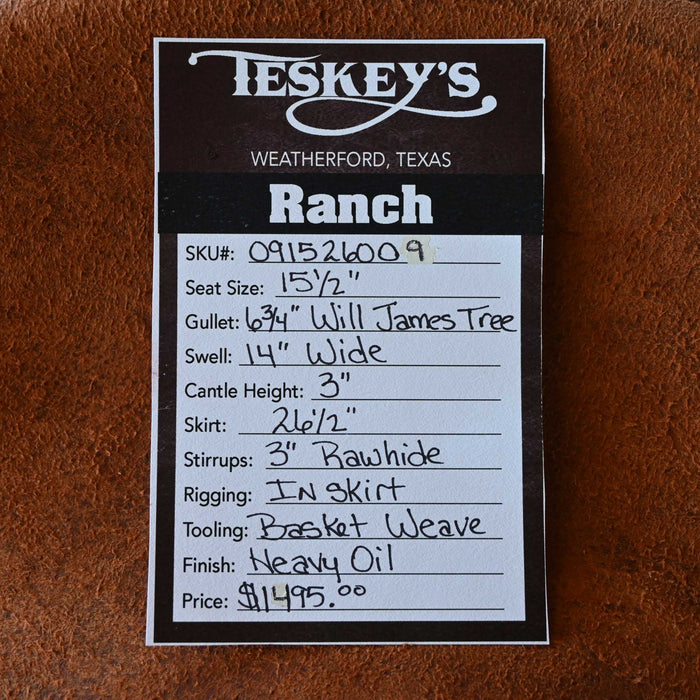 TESKEY'S
WEATHERFORD, TEXAS
Ranch
SKU#: 091526009
Seat Size: 15 1/2"
Gullet: 6 3/4" Will James Tree
Swell: 14" Wide
Cantle Height: 3"
Skirt: 26 1/2"
Stirrups: 3" Rawhide
Rigging: IN skirt
Tooling: Basket Weave
Finish: Heavy Oil
Price: $1495.00